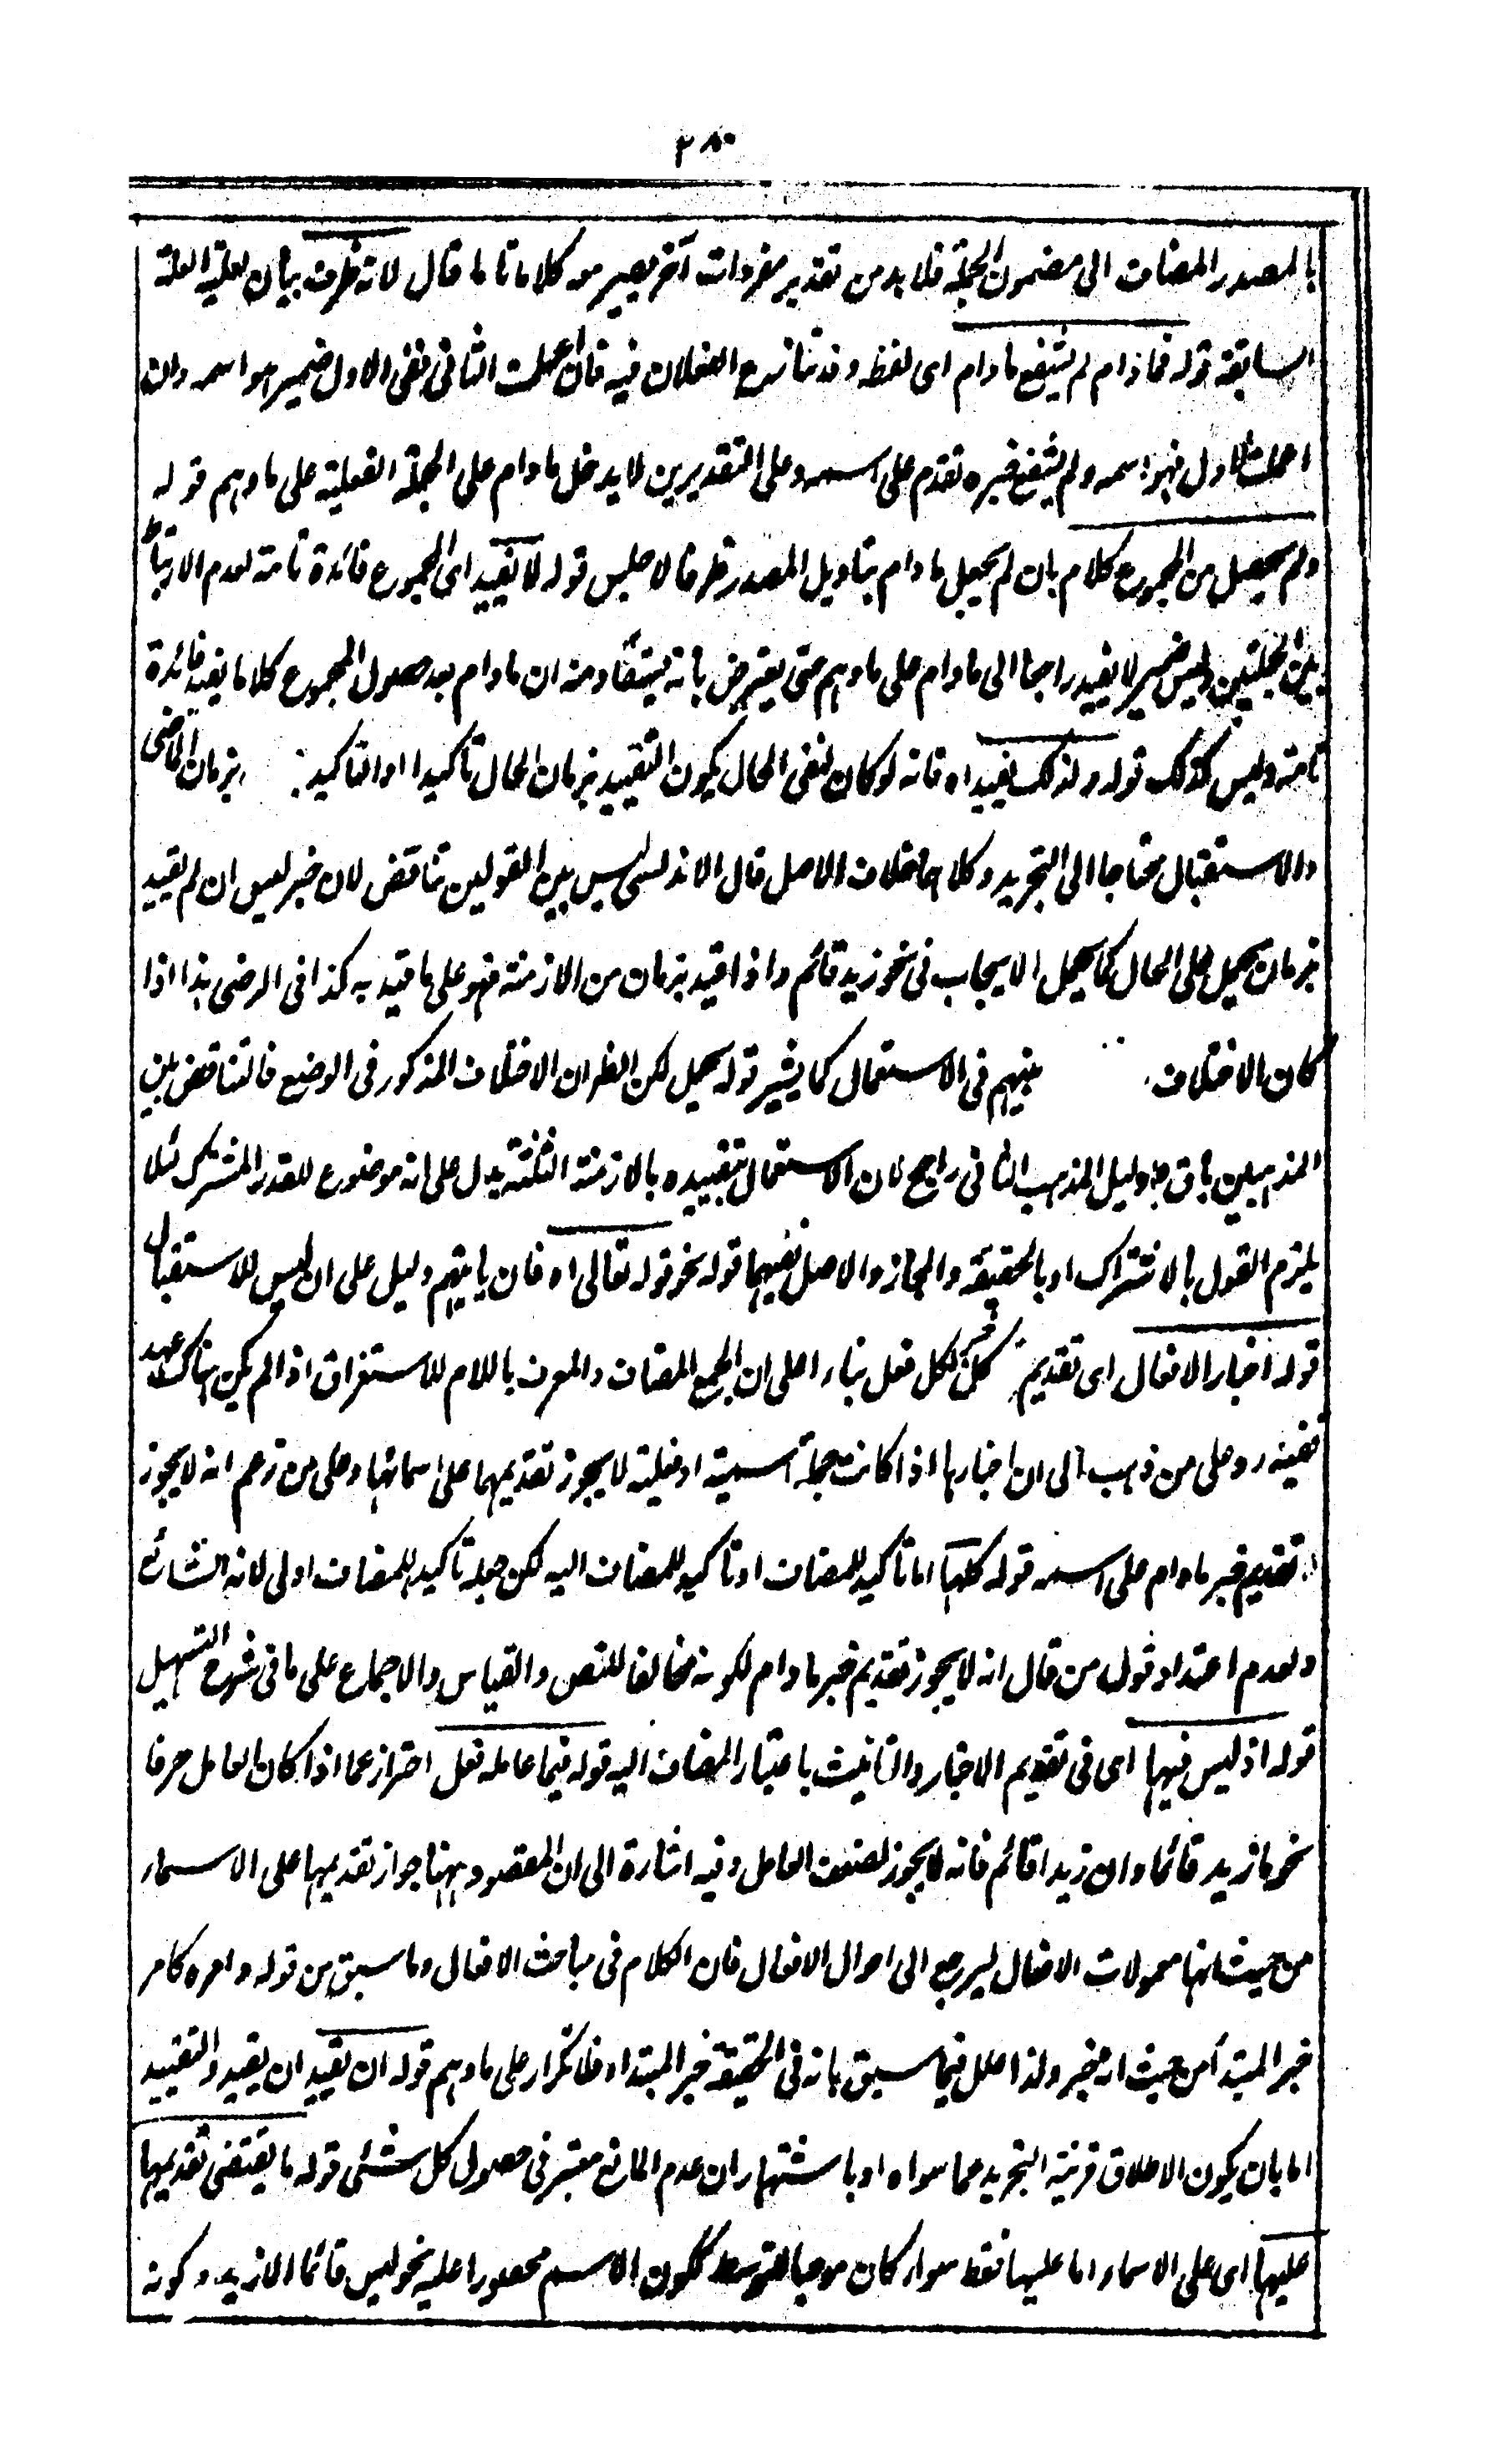 ٣٨٠
بالمصدر المضاف الى مضمون الجملة فلا بد من تقدير مفردات آخر يصير معه كلاما تاما قال لانه ظرف بيان لعلية العلة
السابقة قوله فما دام لم ينتفع مادام اى لفظه وقد تنازع الفعلان فيه فان اعملت الثانى ففى الاول ضمير هو اسمه وان
اعملت الاول فهو اسمه ولم ينتفع خبره تقدم على اسمه وعلى التقديرين لا يدخل مادام على الجملة الفعلية على ما وهم قوله
ولم يحصل من المجموع كلام بان لم يجعل مادام بتاويل المصدر ظرفا لاجلس قوله لا يفيد اى المجموع فائدة تامة لعدم الارتباط
بين الجملتين وليس ضمير لا يفيد راجعا الى مادام على ما وهم حتى يعترض بانه يستفاد منه ان مادام بعد حصول المجموع كلاما يفيد فائدة
تامة وليس كذلك قوله ولذلك يفيد اه فانه لو كان لنفى الحال يكون التقييد بزمان الحال تاكيدا او التاكيد بزمان الماضى
والاستقبال محتاجا الى التجريد وكلاهما خلاف الاصل قال الاندلسى ليس بين القولين تناقض لان خبر ليس ان لم يقيد
بزمان يحمل على الحال كما يحمل الايجاب فى نحو زيد قائم واذا قيد بزمان من الازمنة فهو على ما قيد به كذا فى الرضى هذا اذا
كان الاختلاف بينهم فى الاستعمال كما يشير قوله يحمل لكن الظر ان الاختلاف المذكور فى الوضع فالتناقض بين
المذهبين باق ودليل المذهب الثانى راجح لان الاستعمال بتقييده بالازمنة الثلثة يدل على انه موضوع للقدر المشترك لئلا
يلزم القول بالاشتراك او بالحقيقة والمجاز والاصل نفيهما قوله نحو قوله تعالى اه فان ياتيهم دليل على ان ليس للاستقبال
قوله اخبار الافعال اى تقديم كل خبر لكل فعل بناء على ان الجمع المضاف والمعرف باللام للاستغراق اذا لم يكن هناك عهد
ففيه رد على من ذهب الى ان اخبارها اذا كانت جملة اسمية او فعلية لا يجوز تقديمهما على اسمائها وعلى من زعم انه لا يجوز
تقديم خبر مادام على اسمه قوله كلها اما تاكيد للمضاف او تاكيد للمضاف اليه لكن جعله تاكيد للمضاف اولى لانه الشائع
ولعدم اعتداد قول من قال انه لا يجوز تقديم خبر مادام لكونه مخالفا للنص والقياس والاجماع على ما فى شرح التسهيل
قوله اذ ليس فيها اى فى تقديم الاخبار والتانيث باعتبار المضاف اليه قوله فيما عامله فعل احتراز عما اذا كان العامل حرفا
نحو ما زيد قائما وان زيدا قائم فانه لا يجوز لضعف العامل وفيه اشارة الى ان المقصود ههنا جواز تقديمها على الاسماء
من حيث انها معمولات الافعال ليرجع الى احوال الافعال فان الكلام فى مباحث الافعال وما سبق من قوله وامره كامر
خبر المبتدأ من حيث انه خبر ولذا علل فيما سبق بانه فى الحقيقة خبر المبتدا فلا تكرار على ما وهم قوله ان يقيد ان يقيد والتقييد
اما بان يكون الاطلاق قرينة التجريد عما سواه او باشتهار ان عدم المانع معتبر فى حصول كل شئى قوله ما يقتضى تقديمها
عليها اى على الاسماء اما عليها فقط سواء كان موجبا للتوسط ككون الاسم محصورا عليه نحو ليس قائما الا زيد وكونه